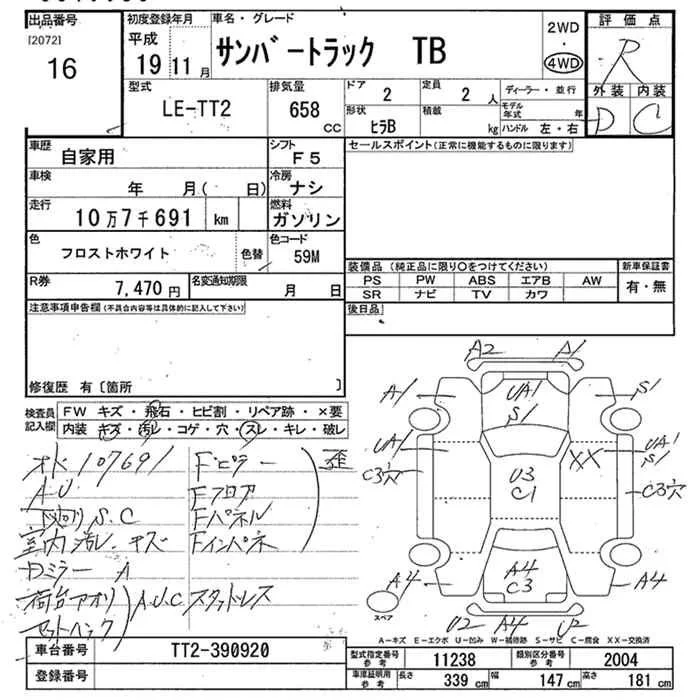 出品番号
[2072]
16
初度登録年月
平成
19 11 月
車名・グレード
サンバートラック TB
2WD
・
4WD
評価点
R
外装 内装
D C
型式
LE-TT2
排気量
658 CC
ドア
2
定員
2 人
形状
ヒラB
積載
kg
ディーラー・並行
モデル年式 年
ハンドル 左・右
車歴
自家用
シフト
F5
車検
年 月( 日)
冷房
ナシ
走行
10万7千691 km
燃料
ガソリン
色
フロストホワイト
色替
色コード
59M
R券
7,470 円
名変通知期限
月 日
セールスポイント(正常に機能するものに限ります)
装備品 (純正品に限り○をつけてください)
PS PW ABS エアB AW
SR ナビ TV カワ
新車保証書
有・無
後日品
注意事項申告欄(不具合内容等は具体的に記入して下さい)
修復歴 有〔箇所 〕
検査員記入欄
FW キズ・飛石・ヒビ割・リペア跡・×要
内装 キズ・汚レ・コゲ・穴・スレ・キレ・破レ
オド107691
A.U.
下廻りS.C
室内汚レ、キズ
Dミラー A
荷台アオリ
セットバック
A.U.C スタッドレス
Fピラー
Fフロア
Fパネル
Fインパネ
歪
A2 A1
A1 UA1 S1 S1
UA1 XX UA1 S1
C3穴 U3 C1 C3穴
A4 A4 C3 A4
U2 A4 U2
スペア
A－キズ E－エクボ U－凹み W－補修跡 S－サビ C－腐食 XX－交換済
車台番号
TT2-390920
登録番号
型式指定番号 参考
11238
類別区分番号 参考
2004
車庫証明用 参考
長さ 339 cm 幅 147 cm 高さ 181 cm